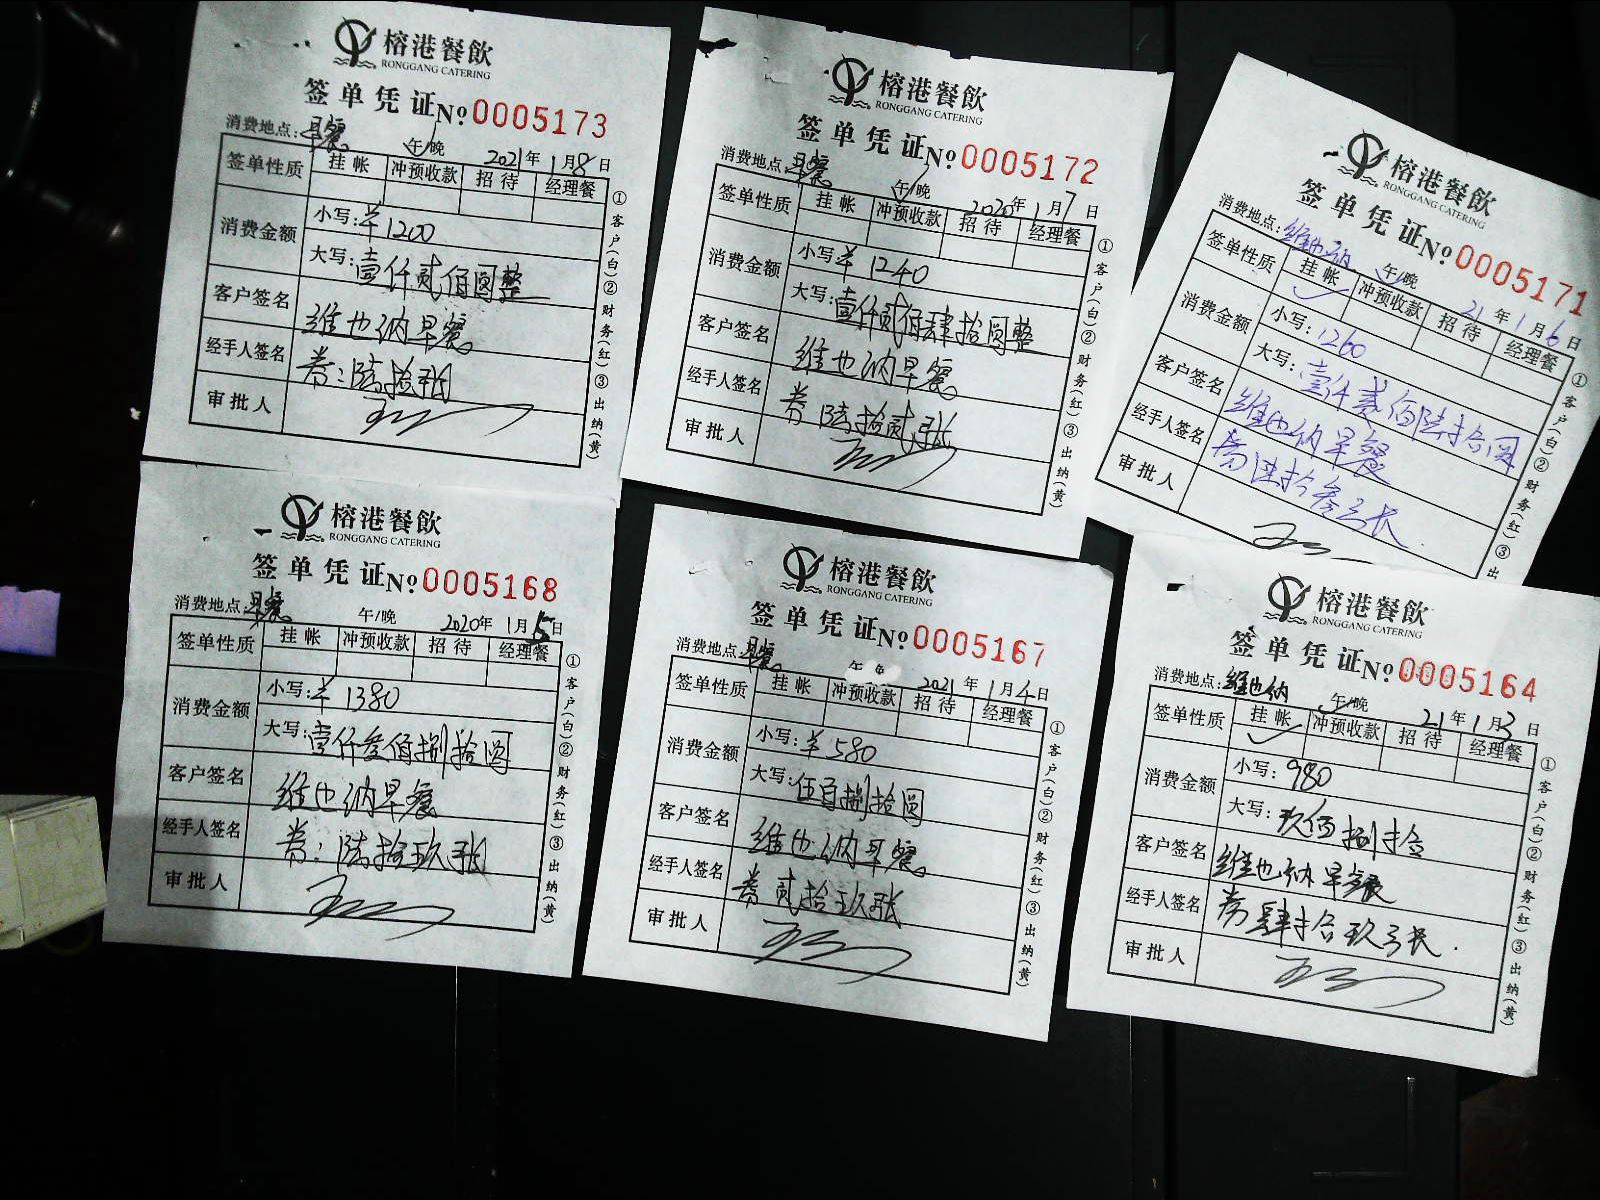 榕港餐飲
RONGGANG CATERING
签单凭证 No 0005173
消费地点：早餐 午/晚 2021年1月8日
签单性质 挂帐 冲预收款 招待 经理餐
消费金额 小写：¥1200
大写：壹仟贰佰圆整
客户签名 维也纳早餐
经手人签名 券：陆拾张
审批人
①客户(白)②财务(红)③出纳(黄)
榕港餐飲
RONGGANG CATERING
签单凭证 No 0005172
消费地点：早餐 午/晚 2020年1月7日
签单性质 挂帐 冲预收款 招待 经理餐
消费金额 小写：¥1240
大写：壹仟贰佰肆拾圆整
客户签名 维也纳早餐
经手人签名 券陆拾贰张
审批人
①客户(白)②财务(红)③出纳(黄)
榕港餐飲
RONGGANG CATERING
签单凭证 No 0005171
消费地点：维也纳 午/晚 21年1月6日
签单性质 挂帐 冲预收款 招待 经理餐
消费金额 小写：1260
大写：壹仟贰佰陆拾圆
客户签名 维也纳早餐
经手人签名 券陆拾叁张
审批人
①客户(白)②财务(红)③出
榕港餐飲
RONGGANG CATERING
签单凭证 No 0005168
消费地点：早餐 午/晚 2020年1月5日
签单性质 挂帐 冲预收款 招待 经理餐
消费金额 小写：¥1380
大写：壹仟叁佰捌拾圆
客户签名 维也纳早餐
经手人签名 券：陆拾玖张
审批人
①客户(白)②财务(红)③出纳(黄)
榕港餐飲
RONGGANG CATERING
签单凭证 No 0005167
消费地点：早餐 午 2021年1月4日
签单性质 挂帐 冲预收款 招待 经理餐
消费金额 小写：¥580
大写：伍百捌拾圆
客户签名 维也纳早餐
经手人签名 券贰拾玖张
审批人
①客户(白)②财务(红)③出纳(黄)
榕港餐飲
RONGGANG CATERING
签单凭证 No 0005164
消费地点：维也纳 午/晚 21年1月3日
签单性质 挂帐 冲预收款 招待 经理餐
消费金额 小写：980
大写：玖佰捌拾
客户签名 维也纳早餐
经手人签名 券肆拾玖张.
审批人
①客户(白)②财务(红)③出纳(黄)